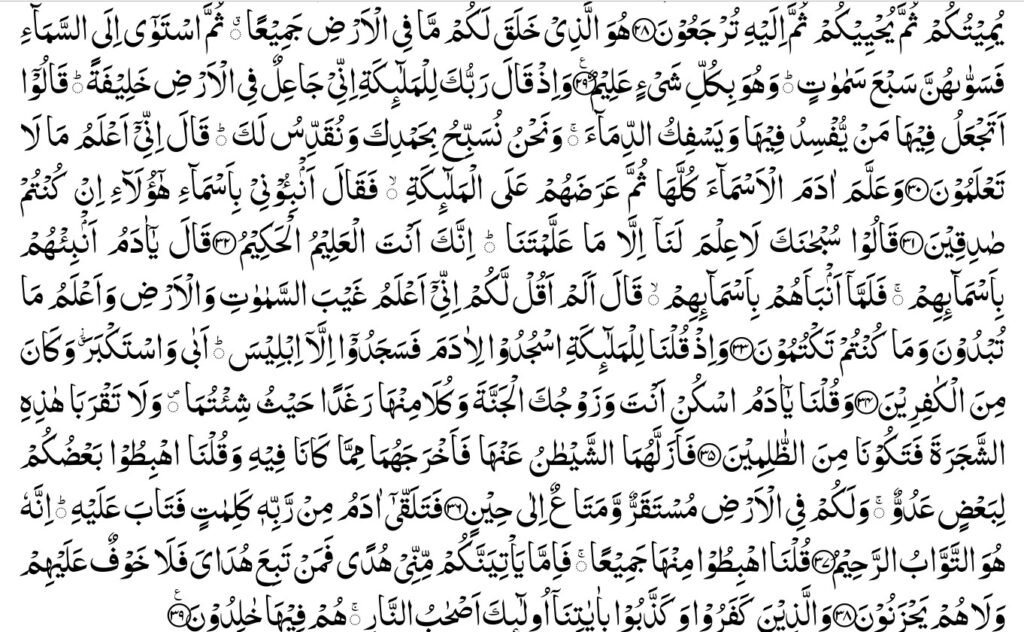 يُمِيْتُكُمْ ثُمَّ يُحْيِيْكُمْ ثُمَّ اِلَيْهِ تُرْجَعُوْنَ ﴿۲۸﴾ هُوَ الَّذِىْ خَلَقَ لَكُمْ مَّا فِى الْاَرْضِ جَمِيْعًا ۛ ثُمَّ اسْتَوٰٓى اِلَى السَّمَآءِ
فَسَوّٰٮهُنَّ سَبْعَ سَمٰوٰتٍ ؕ وَهُوَ بِكُلِّ شَىْءٍ عَلِيْمٌ ﴿۲۹﴾ وَاِذْ قَالَ رَبُّكَ لِلْمَلٰٓٮِٕكَةِ اِنِّىْ جَاعِلٌ فِى الْاَرْضِ خَلِيْفَةً ؕ قَالُوْٓا
اَتَجْعَلُ فِيْهَا مَنْ يُّفْسِدُ فِيْهَا وَيَسْفِكُ الدِّمَآءَ ۚ وَنَحْنُ نُسَبِّحُ بِحَمْدِكَ وَنُقَدِّسُ لَكَ ؕ قَالَ اِنِّىْٓ اَعْلَمُ مَا لَا
تَعْلَمُوْنَ ﴿۳۰﴾ وَعَلَّمَ اٰدَمَ الْاَسْمَآءَ كُلَّهَا ثُمَّ عَرَضَهُمْ عَلَى الْمَلٰٓٮِٕكَةِ ۙ فَقَالَ اَنْۢبِـُٔوْنِىْ بِاَسْمَآءِ هٰٓؤُلَآءِ اِنْ كُنْتُمْ
صٰدِقِيْنَ ﴿۳۱﴾ قَالُوْا سُبْحٰنَكَ لَا عِلْمَ لَنَآ اِلَّا مَا عَلَّمْتَنَا ؕ اِنَّكَ اَنْتَ الْعَلِيْمُ الْحَكِيْمُ ﴿۳۲﴾ قَالَ يٰٓاٰدَمُ اَنْۢبِئْهُمْ
بِاَسْمَآٮِٕهِمْ ۚ فَلَمَّآ اَنْۢبَاَهُمْ بِاَسْمَآٮِٕهِمْ ۙ قَالَ اَلَمْ اَقُلْ لَّكُمْ اِنِّىْٓ اَعْلَمُ غَيْبَ السَّمٰوٰتِ وَالْاَرْضِ وَاَعْلَمُ مَا
تُبْدُوْنَ وَمَا كُنْتُمْ تَكْتُمُوْنَ ﴿۳۳﴾ وَاِذْ قُلْنَا لِلْمَلٰٓٮِٕكَةِ اسْجُدُوْا لِاٰدَمَ فَسَجَدُوْٓا اِلَّآ اِبْلِيْسَ ؕ اَبٰى وَاسْتَكْبَرَ ۖ وَكَانَ
مِنَ الْكٰفِرِيْنَ ﴿۳۴﴾ وَقُلْنَا يٰٓاٰدَمُ اسْكُنْ اَنْتَ وَزَوْجُكَ الْجَنَّةَ وَكُلَا مِنْهَا رَغَدًا حَيْثُ شِئْتُمَا ۪ وَلَا تَقْرَبَا هٰذِهِ
الشَّجَرَةَ فَتَكُوْنَا مِنَ الظّٰلِمِيْنَ ﴿۳۵﴾ فَاَزَلَّهُمَا الشَّيْطٰنُ عَنْهَا فَاَخْرَجَهُمَا مِمَّا كَانَا فِيْهِ وَقُلْنَا اهْبِطُوْا بَعْضُكُمْ
لِبَعْضٍ عَدُوٌّ ۚ وَلَكُمْ فِى الْاَرْضِ مُسْتَقَرٌّ وَّمَتَاعٌ اِلٰى حِيْنٍ ﴿۳۶﴾ فَتَلَقّٰٓى اٰدَمُ مِنْ رَّبِّهٖ كَلِمٰتٍ فَتَابَ عَلَيْهِ ؕ اِنَّهٗ
هُوَ التَّوَّابُ الرَّحِيْمُ ﴿۳۷﴾ قُلْنَا اهْبِطُوْا مِنْهَا جَمِيْعًا ۚ فَاِمَّا يَاْتِيَنَّكُمْ مِّنِّىْ هُدًى فَمَنْ تَبِعَ هُدَاىَ فَلَا خَوْفٌ عَلَيْهِمْ
وَلَا هُمْ يَحْزَنُوْنَ ﴿۳۸﴾ وَالَّذِيْنَ كَفَرُوْا وَكَذَّبُوْا بِاٰيٰتِنَآ اُولٰٓٮِٕكَ اَصْحٰبُ النَّارِ ۚ هُمْ فِيْهَا خٰلِدُوْنَ ﴿۳۹﴾